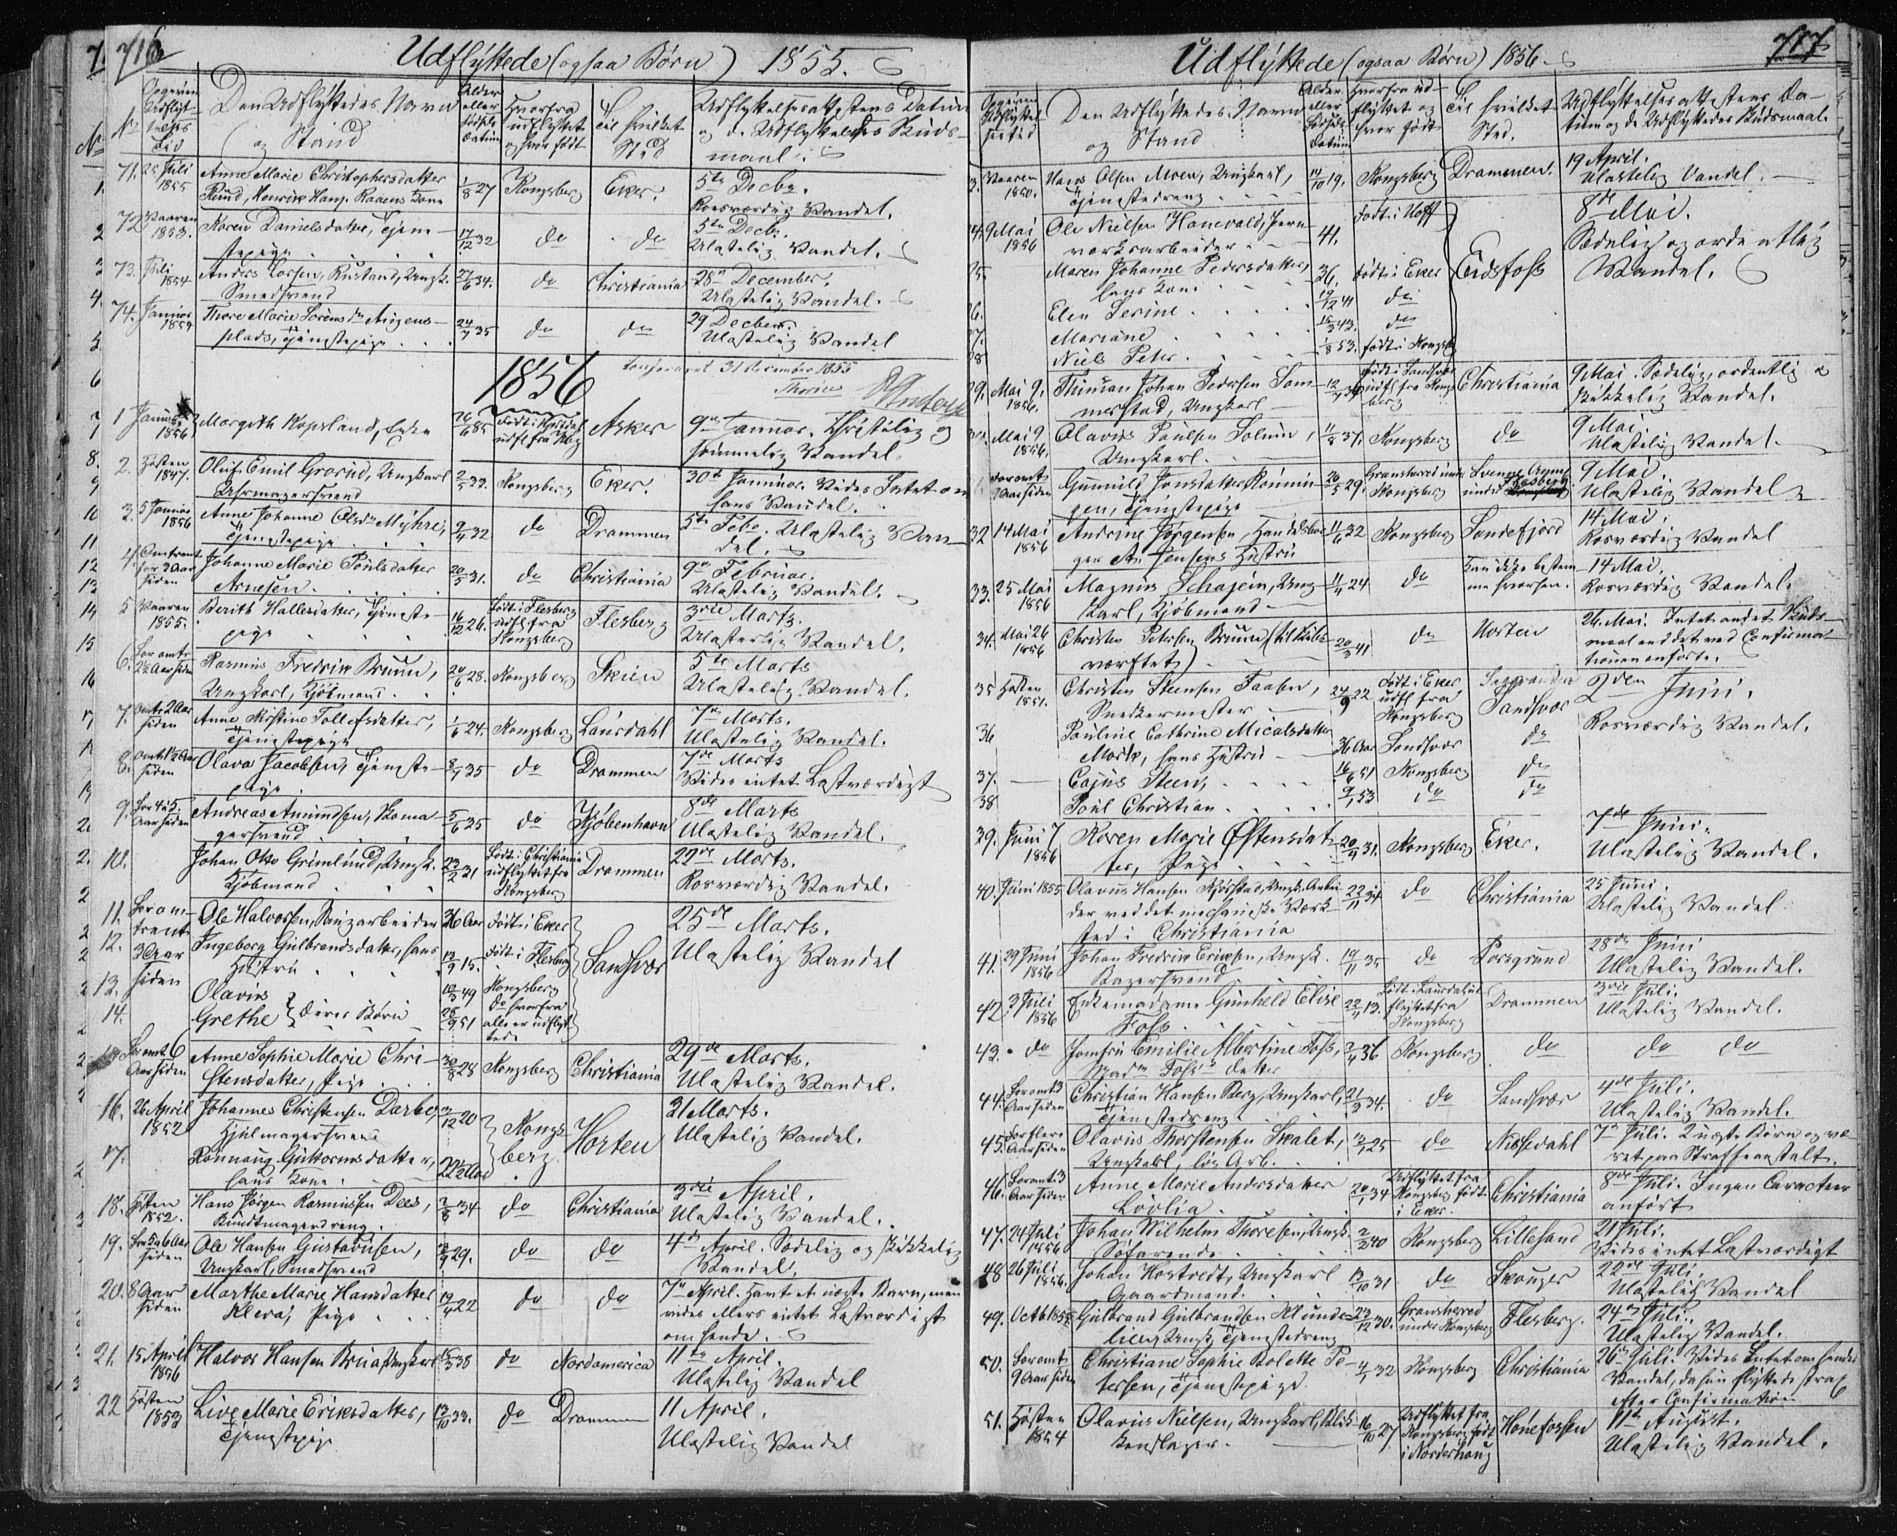 716
Udflyttede (ogsaa Børn) 1855.
No
Den Udflyttedes Navn og Stand
Alder eller Fødsels Datum
Hvorfra udflyttet og hvor født
Til hvilket Sted
Udflyttelsesattestens Datum og de Udflyttedes Skudsmaal
71. 25 Juli 1855 Anne Marie Christophersdatter 1/8 27 Kongsberg Eker. 5te Decbr.
Rosværdig Vandel.
72 Vaaren 1853. Karen Danielsdatter, Tjene- 17/12 32 do do 5te Decbr.
stepige Ulastelig Vandel.
73. Juli 1854 Anders Larsen, Rustand, Ungk. 27/6 34. do Christiania 28de December.
Smedsvend Ulastelig Vandel.
74. Januar 1854 Thore Marie Sørensdr Avigens- 24/7 35 do do 29 Decber.
plads, Tjenestepige Ulastelig Vandel
31 December 1855
1856
1 Januar 1856 Margith Kopsland, Enke 26/6 85 Asker 9de Januar. Christelig og
sømmelig Vandel.
2. Høsten 1847. Oluf Emil Grorud, Ungkarl 2/5 33. Kongsberg Eker. 30te Januar. Vides Intet om
Uhrmagersvend hans Vandel.
3. 5 Januar 1856 Anne Johanne Olsdr Myhre, 9/4 32 do Drammen 5te Febr. Ulastelig Van-
Tjenestepige del.
4. Omtrent for 3 Aar siden Johanne Marie Poulsdatter 20/5 31. do Christiania 9de Februar.
Arnesen Ulastelig Vandel.
5 Vaaren 1855. Berith Hallesdatter, Tjeneste- 16/12 26. Født i Flesberg udfl fra Kongsberg Flesberg 3die Marts.
pige Ulastelig Vandel.
6. For omtr 2½ Aar siden Rasmus Fredrik Bruun, 20/6 28. Kongsberg Skien 5te Marts
Ungkarl, Kjøbmand Ulastelig Vandel.
7. Omtr 2 Aar siden Anne Kirstine Tollefsdatter, 1/6 24. Kongsberg Laurdahl 7de Marts.
Tjenestepige Ulastelig Vandel.
8. Omtr 1½ Aar siden Olava Jacobsen, Tjeneste- 8/7 35 do Drammen 7de Marts
pige Vides intet Lastværdigt
9. For 4 a 5 Aar siden Andreas Amundsen, Homa 5/6 25 do Kjøbenhavn 8de Marts
gersvend Ulastelig Vandel.
10. Johan Otto Grimlund, Ungk. 23/2 21 Født i Christiania udflyttet fra Kongsberg Drammen 22de Marts.
Kjøbmand Rosværdig Vandel.
11. For om- Ole Halvorsen, Saugarbeider 36 Aar Født i Eker 25de Marts.
12. trent Ingeborg Gulbrandsdatter, hans 13/9 15. Født i Flesberg Sandsvær Ulastelig Vandel
3 Aar siden Hustru
13. Olavus 10/3 49 Kongsberg
14. Grethe } deres Børn 28/9 51 do hvorfra alle er udflyttede
For omt 6 Aar siden Anne Sophie Marie Chri- 30/8 28 Kongsberg Christiania 29de Marts.
stensdatter, Pige Ulastelig Vandel.
16. 26 April 1852 Johannes Christensen Darberg 3/12 20 Kongsberg Horten 31 Marts.
Hjulmagersvend Ulastelig Vandel.
17. Rønnaug Guttormsdatter,
hans Kone
18. Høsten 1852. Hans Jørgen Rasmussen Dees, 2/8 34 do Christiania 3die April.
Bundtmagerdreng. Ulastelig Vandel.
19. For 5 a 6 Aar siden Ole Hansen Gustavusen, 3/9 29. do do 4de April. Sædelig og skikkelig
Ungkarl, Smedsvend Vandel.
20. 8 Aar siden Marthe Marie Hansdatter 19/4 22 do do 7de April. Havt et uægte Barn, men
Kleva, Pige vides ellers intet Lastværdigt
om hende.
21. 15 April 1856 Halvor Hansen Brua, Ungkarl 15/3 38 do Nordamerica 11te April.
Ulastelig Vandel
22 Høsten 1853 Live Marie Eriksdatter, 13/10 33. do Drammen 11 April.
Tjenestepige Ulastelig Vandel
717
Udflyttede (ogsaa Børn) 1856.
Den Udflyttedes Navn og Stand
Alder eller Fødsels Datum
Hvorfra udflyttet og hvor født
Til hvilket Sted.
Udflyttelsesattestens Datum og de Udflyttedes Skudsmaal.
3. Vaaren 1850. Hans Olsen Moen, Ungkarl, 14/10 19. Kongsberg Drammen. 19 April.
Tjenestedreng Ulastelig Vandel.
24. 9 Mai 1856 Ole Nielsen Hanevold, Jern- 41. Født i Hoff 8de Mai.
værksarbeider Sædelig og ordentlig
25. Maren Johanne Pedersdatter, 36. Født i Eker Eidsfoss Vandel.
hans Kone
26. Elen Serine 12/12 41 do
27. Mariane 15/3 43. do
28 Niels Peter 1/8 53. født i Kongsb
29. Mai 9. 1856. Thimian Johan Pedersen Søm- Christiania 9 Mai. Sædelig, ordentlig
merstad, Ungkarl skikkelig Vandel.
30. Mai 9. 1856. Olavus Paulsen Solum, 11/8 37. Kongsberg do 9 Mai.
Ungkarl. Ulastelig Vandel.
For omtr 9 Aar siden Gunnild Jonsdatter Rønnin- 26/5 29. Gransherred under Kongsberg 9 Mai.
gen, Tjenestepige Ulastelig Vandel
32 14 Mai 1856 Andrine Jørgensen, Handelsbor 11/6 32 Kongsberg Sandefjord 14 Mai.
ger A. Jensens Hustru Rosværdig Vandel
33. 25 Mai 1856 Magnus Schagein, Ung- 11/4 24 do Kan ikke bestem me hvorhen. 14 Mai.
karl, Kjøbmand Rosværdig Vandel.
34. Mai 26 1856 Christen Petersen Bruun (til Skibs 20/3 41 do Horten 26 Mai. Intet andet Skuds-
værftet) maal end det ved Confirma-
tionen anførte.
35 Høsten 1851. Christen Steensen Faaben, 24/9 22 Født i Eker udfl fra Kongsberg Sandsvær 2den Juni.
Snedkermester Rosværdig Vandel.
36 Pauline Cathrine Micalsdatter 36 Aar Sandsvær do
Mørk, hans Hustru
37. Cajus Steen, 16/6 51 Kongsberg do
38 Poul Christian 9/1 53 do do
39. Juni 7 1856 Karen Marie Østensdat- 20/4 31. Kongsberg Eker. 7de Juni.
ter, Pige Ulastelig Vandel.
40. Juni 1855 Olavus Hansen Kjørstad, Ungk. Arbei 22/11 34 do Christiania 25 Juni.
der ved det mechaniske Værk- Ulastelig Vandel
sted i Christiania
41. 29 Juni 1856 Johan Fredrik Eriksen, Ungk. 19/11 35 do Porsgrund 28de Juni
Bagersvend Ulastelig Vandel.
42 3 Juli 1856 Enkemadame Gunhild Elise 22/4 13. Født i Laurdal udflyttet fra Kongsberg Drammen 3die Juli.
Foss Ulastelig Vandel.
43. do Jomfru Emilie Albertine Foss, 2/4 36 Kongsberg do do do
Madm Foss's datter
44. For omt 3 Aar siden Christian Hansen Berg, Ungkarl, 21/9 34. do Sandsvær 4de Juli.
Tjenestedreng Ulastelig Vandel.
45. For flere Aar siden Olavus Thorstensen Skalet, 12/1 25 do Nissedahl 7de Juli. 2 uægte Børn og væ
Ungkarl, løs Arb. ret paa Straffeanstalt.
46. For omt 3 Aar siden Anne Marie Andersdatter 20/1 34 Udflyttet fra Kongsberg født i Eker Christiania 8de Juli. Ingen Caracteer
Løvlia anført
47. 21 Juli 1856 Johan Wilhelm Thoresen, Ungk. 2/3 40 Kongsberg Lillesand 21 Juli.
Søfarende Vides intet Lastværdigt
48 26 Juli 1856. Johan Hostvedt, Ungkarl 13/10 31 do Skouger 22de Juli.
Gaardmand. Ulastelig Vandel
49. Octb 1855 Gulbrand Gulbrandsen Klunder- 23/12 30. Gransherred under Kongsberg Flesberg. 24de Juli.
lien, Ungk. Tjenestedreng Ulastelig Vandel.
50. For omt 9 Aar siden Christiane Sophie Bolette Pe- 4/1 32 Kongsberg Christiania 26de Juli. Vides Intet om hendes
tersen, Tjenestepige. Vandel, da hun flyttede strax
efter Confirmation
51. Høsten 1854 Olavus Nielsen, Ungkarl, Blik- 16/10 27 Udflyttet fra Kongsberg født i Norderhoug Hønefossen 11te August.
kenslager. Ulastelig Vandel.